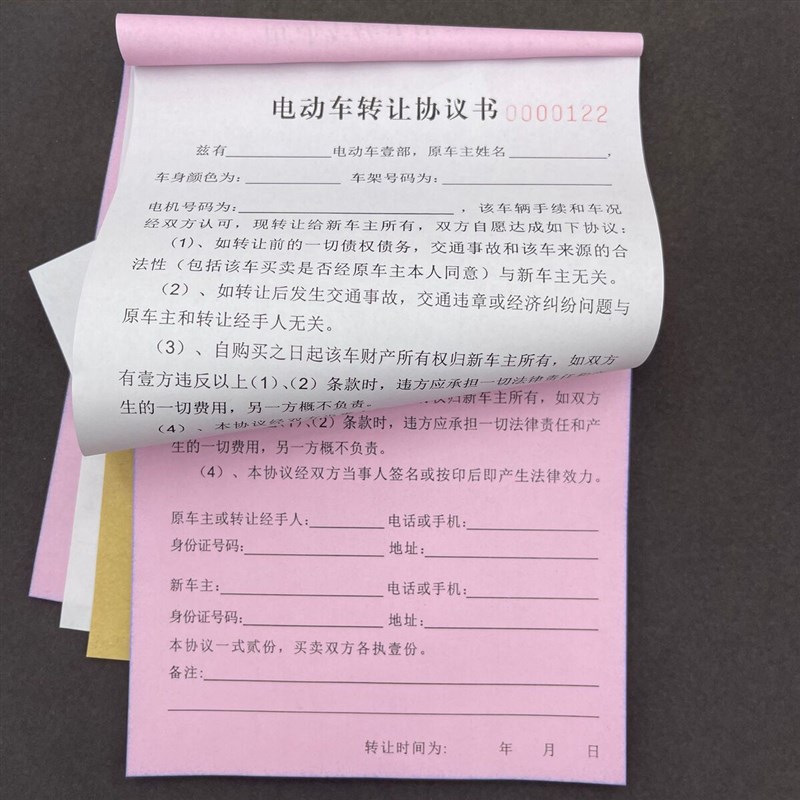 电动车转让协议书 0000122
兹有____________电动车壹部，原车主姓名____________，
车身颜色为：____________ 车架号码为：____________
电机号码为：____________，该车辆手续和车况
经双方认可，现转让给新车主所有，双方自愿达成如下协议：
（1）、如转让前的一切债权债务，交通事故和该车来源的合
法性（包括该车买卖是否经原车主本人同意）与新车主无关。
（2）、如转让后发生交通事故，交通违章或经济纠纷问题与
原车主和转让经手人无关。
（3）、自购买之日起该车财产所有权归新车主所有，如双方
有壹方违反以上（1）、（2）条款时，违方应承担一切法律责任
生的一切费用，另一方概不负责。
（4）、本协议经
权归新车主所有，如双方
（2）条款时，违方应承担一切法律责任和产
生的一切费用，另一方概不负责。
（4）、本协议经双方当事人签名或按印后即产生法律效力。
原车主或转让经手人：____________ 电话或手机：____________
身份证号码：____________ 地址：____________
新车主：____________ 电话或手机：____________
身份证号码：____________ 地址：____________
本协议一式贰份，买卖双方各执壹份。
备注：____________
转让时间为： 年 月 日